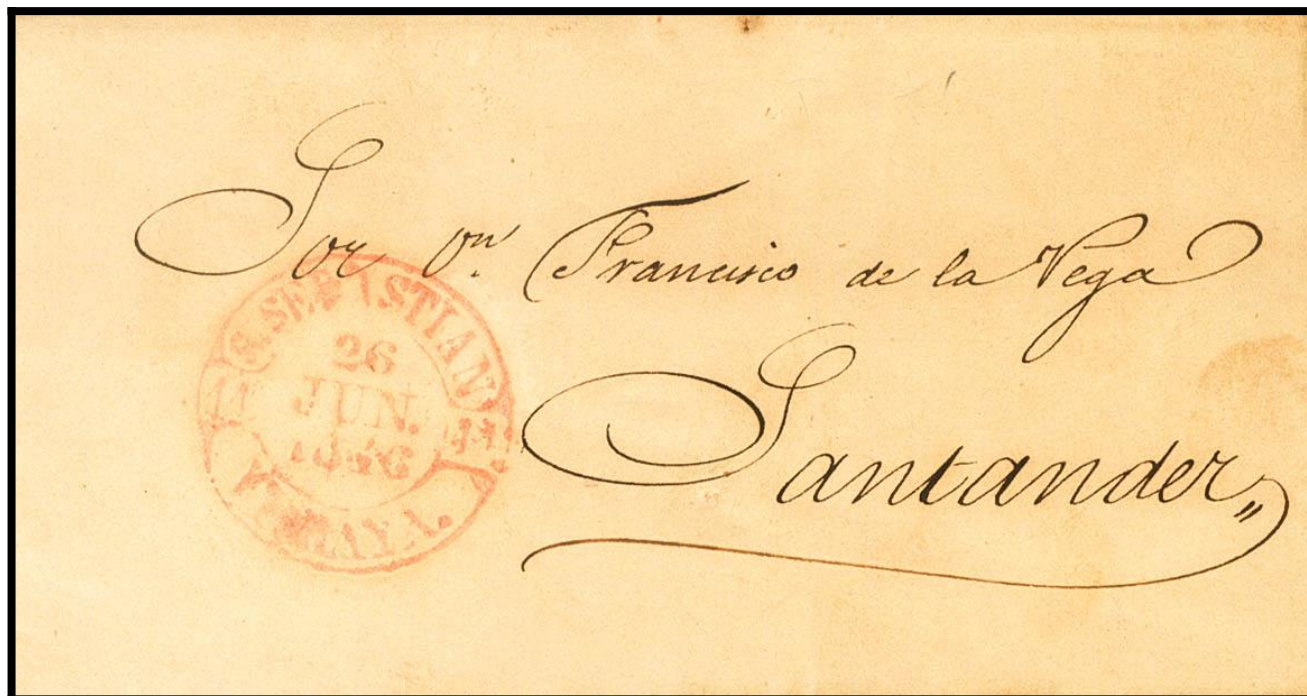 Sor Dn. Francisco de la Vega
Santander,,
S. SEBASTIAN.
26
JUN.
1846